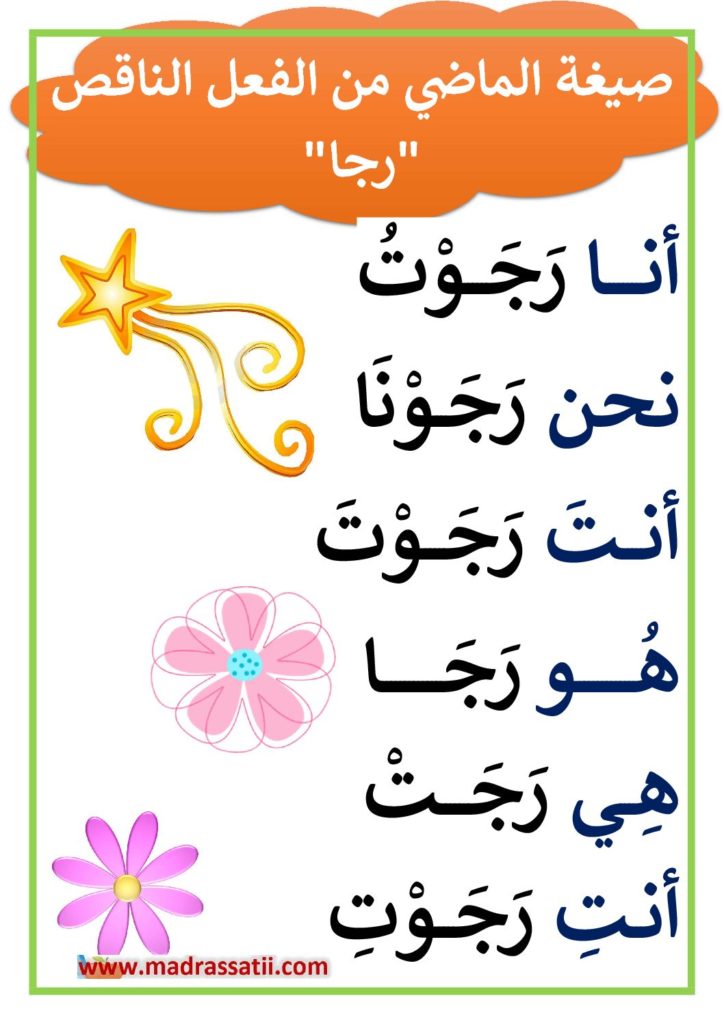 صيغة الماضي من الفعل الناقص
"رجا"
أنــا رَجَــوْتُ
نحن رَجَـوْنَا
أنـتَ رَجَــوْتَ
هُـــو رَجَـــا
هِـي رَجَــتْ
أنـتِ رَجَــوْتِ
www.madrassatii.com